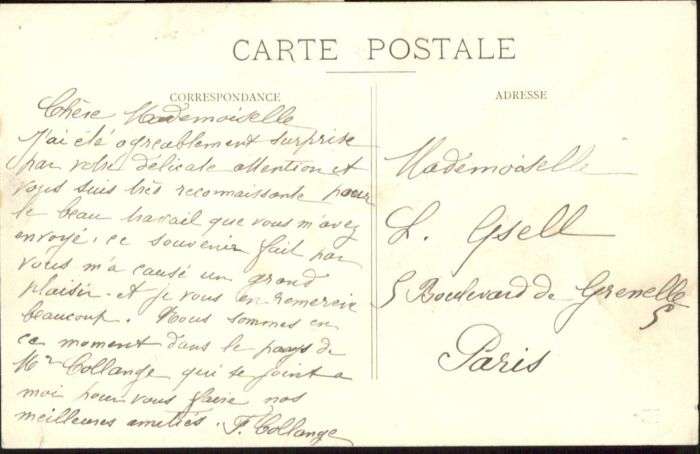 CARTE POSTALE
CORRESPONDANCE
Chère Mademoiselle
J'ai été agreablement surprise
par votre délicate attention et
vous suis très reconnaissante pour
le beau travail que vous m'avez
envoyé, ce souvenir fait par
vous m'a causé un grand
plaisir et je vous en remercie
beaucoup. Nous sommes en
ce moment dans le pays de
Mr Collange qui se joint a
moi pour vous faire nos
meilleures amitiés. F. Collange
ADRESSE
Mademoiselle
L. Gsell
5 Boulevard de Grenelle 5
Paris